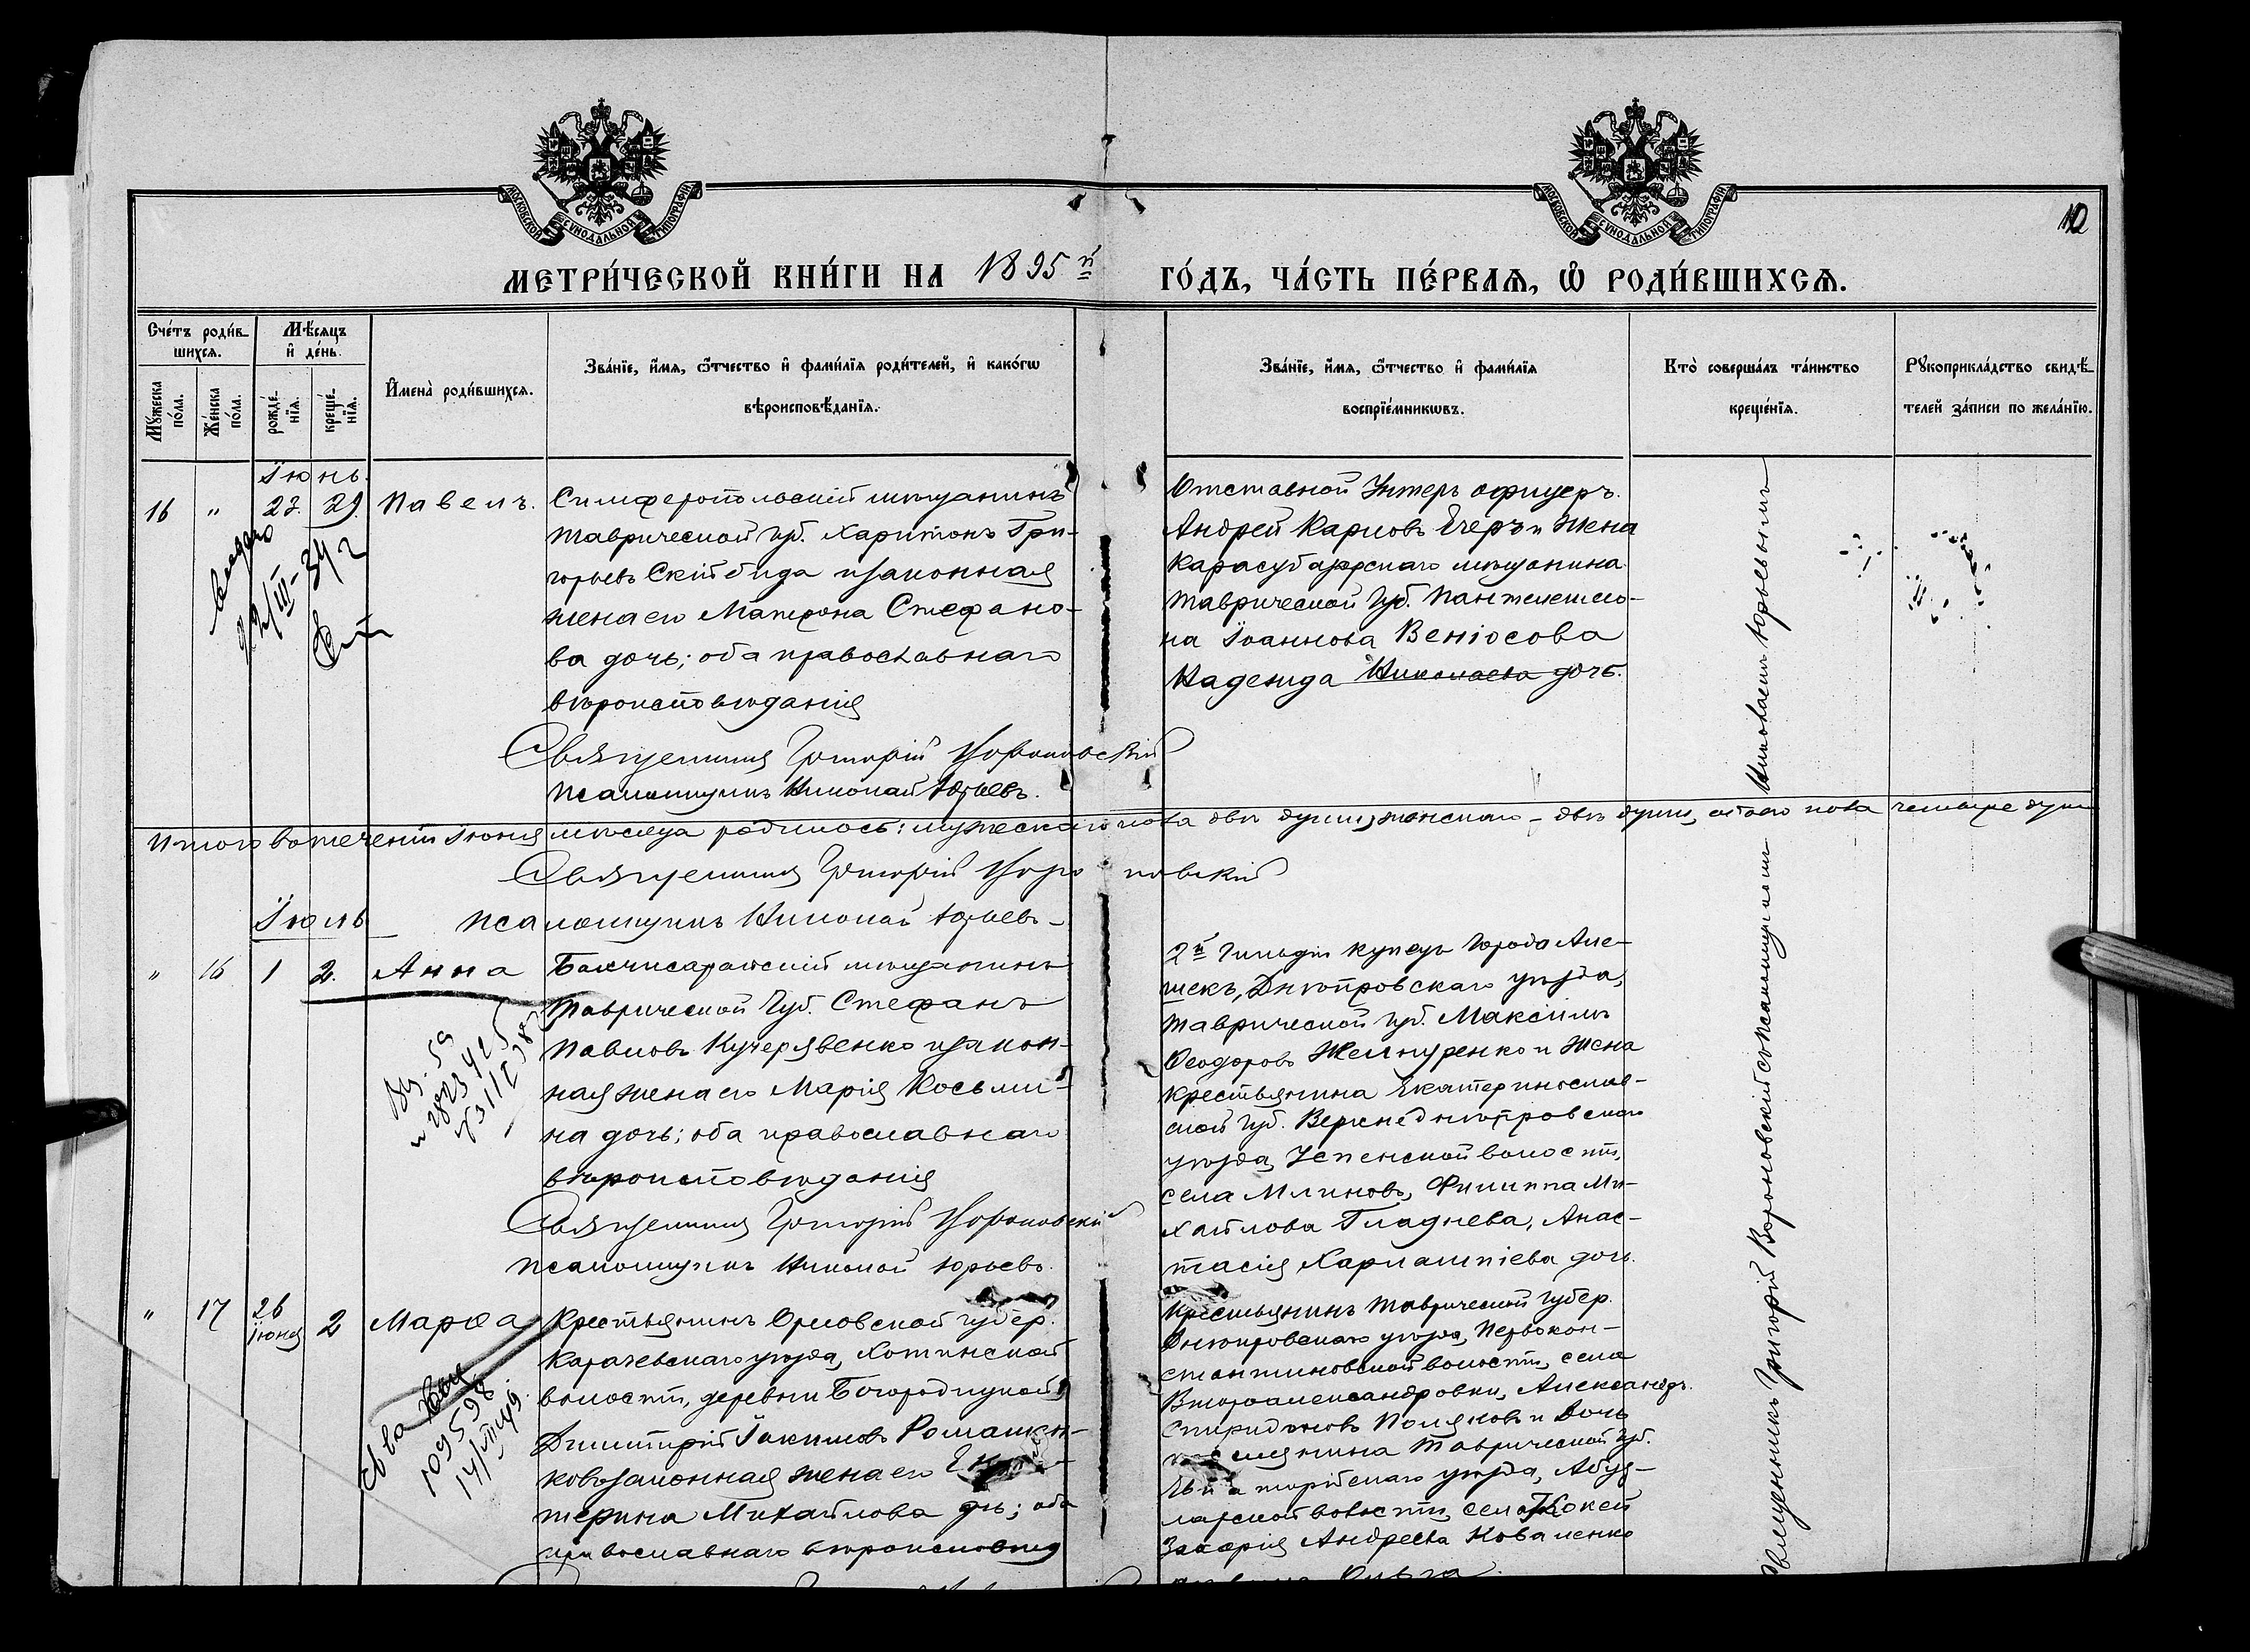 МОСКОВСКОЙ СѴНОДАЛЬНОЙ ТИПОГРАФІИ
МОСКОВСКОЙ СѴНОДАЛЬНОЙ ТИПОГРАФІИ
МЕТРИ́ЧЕСКОЙ КНИ́ГИ НА 1895 й ГО́ДЪ, ЧА́СТЬ ПЕ́РВАѦ, Ѽ РОДИ́ВШИХСѦ.
Сче́тъ роди́в-
шихсѧ.
Мꙋжеска по́ла.
Же́нска по́ла.
Мѣ́сѧцъ и҆ де́нь.
рожде́-нїѧ.
креще́-нїѧ.
И҆мена̀ роди́вшихсѧ.
Зва́нїе, и҆́мѧ, ѻ҆́тчество и҆ фами́лїѧ роди́телей, и҆ како́гѡ
вѣроисповѣ́данїѧ.
Зва́нїе, и҆́мѧ, ѻ҆́тчество и҆ фами́лїѧ
воспрїе́мникѡвъ.
Кто̀ соверша́лъ та́инство
креще́нїѧ.
Рꙋкоприкла́дство свидѣ́-
телей за́писи по жела́нїю.
Іюнь.
16 " 23. 29. Павелъ.
Симферопольскій мѣщанинъ
Таврической губ. Харитонъ Гри-
горьевъ Скибида и законная
жена его Матрона Стефано-
ва дочь; оба православнаго
вѣроисповѣданія
Отставной Унтеръ офицеръ
Андрей Карповъ Егеръ и жена
Карасубазарскаго мѣщанина
Таврической Губ. Пантелеимо-
на Іоаннова Веніосова
Надежда Николаева дочь.
22/III-34 г
Священникъ Григорій Вороновскій
Псаломщикъ Николай Юрьевъ.
Итого въ теченіи Іюня мѣсяца родилось: мужескаго пола двѣ души, женскаго – двѣ души, обоего пола четыре души
Священникъ Григорій Вороновскій
Псаломщикъ Николай Юрьевъ
Іюль
" 16 1 2. Анна
Бахчисарайскій мѣщанинъ
Таврической Губ. Стефанъ
Павловъ Кучерявенко и закон-
ная жена его Марія Косьми-
на дочь; оба православнаго
вѣроисповѣданія
2й Гильдіи купецъ Города Але-
шекъ, Днѣпровскаго уѣзда,
Таврической губ. Максимъ
Ѳеодоровъ и жена
крестьянина Екатеринослав-
ской губ. Верхнеднѣпровскаго
уѣзда, Успенской волости,
села Млиновъ, Филиппа Ми-
хайлова Гладнева, Анас-
тасія Харлампіева дочь.
Священникъ Григорій Вороновскій
Псаломщикъ Николай Юрьевъ.
" 17 26 Іюня 2 Марѳа
Крестьянинъ Орловской губер.
Карачевскаго уѣзда, Хотинской
волости, деревни Богородицкой
Димитрій Іакимовъ Романен-
ковъ и законная жена его Ека-
терина Михайлова дчь; оба
православнаго вѣроисповѣд
Крестьянинъ Таврической Губер.
Днѣпровскаго уѣзда, Первокон-
стантиновской волости, села
Второалександровки, Александръ
Спиридоновъ Поляковъ и дочь
Таврической губ.
Евпаторійскаго уѣзда, Абуз-
ларской волости, села
Захарія Андреева Коваленко
109598
Священникъ Григорій Вороновскій съ псаломщикомъ Николаемъ Юрьевымъ